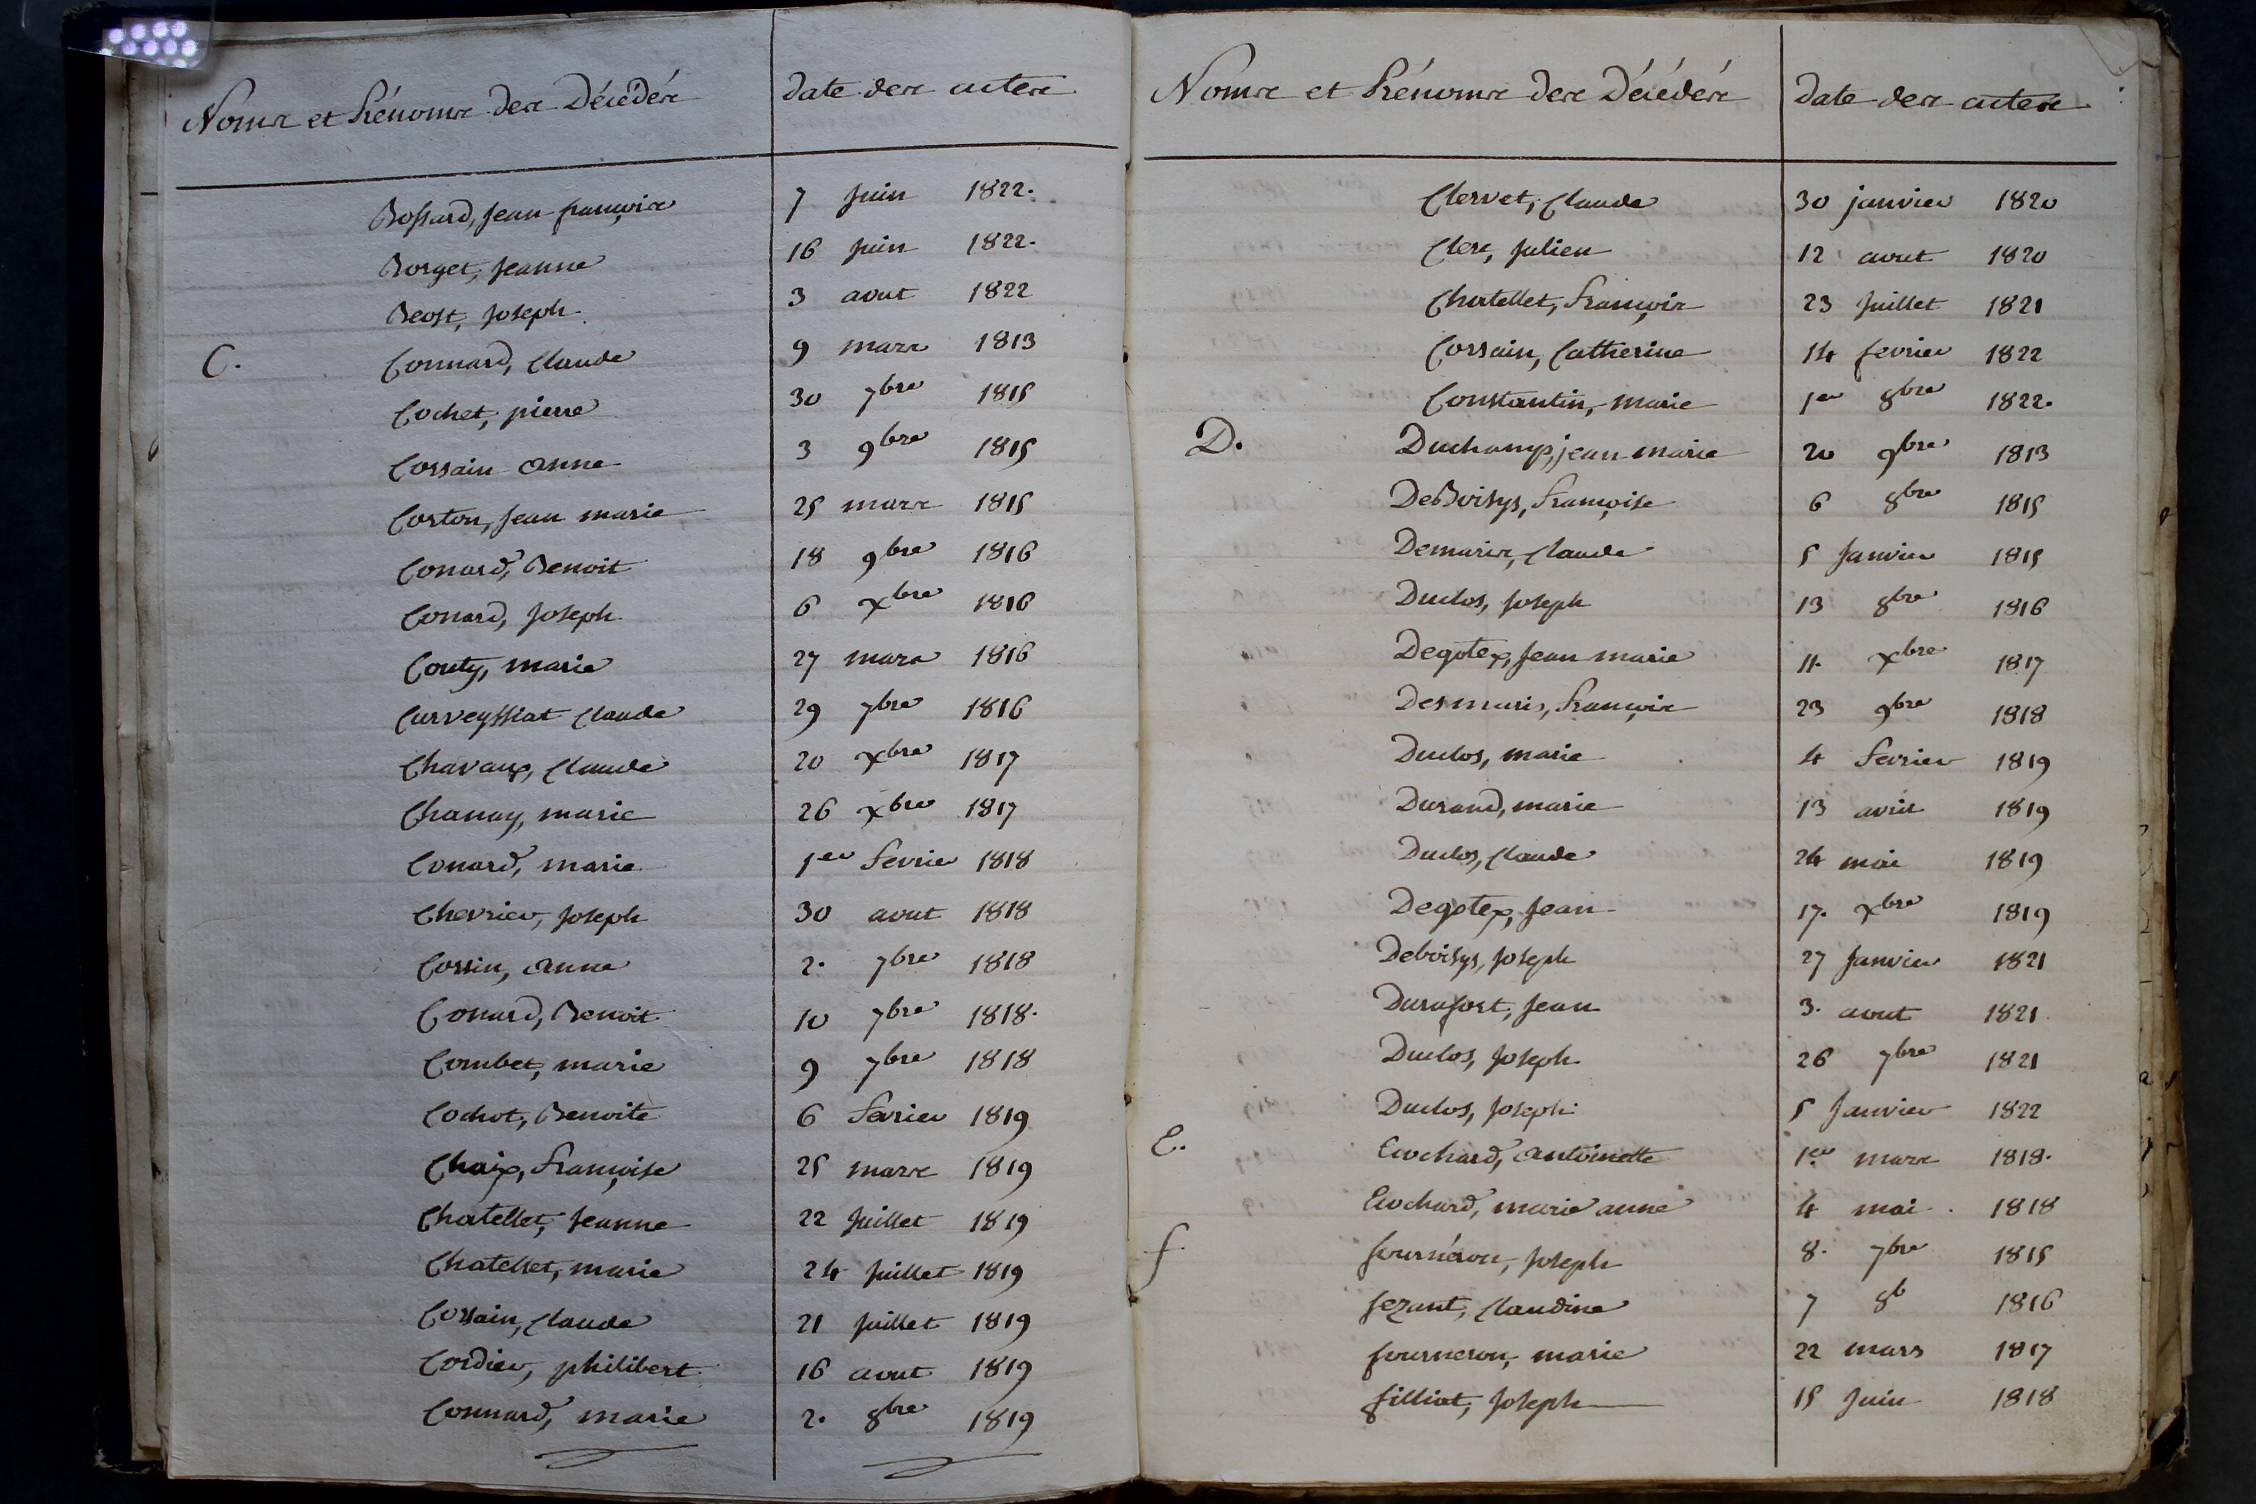 Noms et Prénoms des Décédés Date des actes
Bossard, Jean françois 7 Juin 1822.
Borget, Jeanne 16 Juin 1822.
Beost, Joseph 3 aout 1822
C. Connard, Claude 9 mars 1813
Cochet, pierre 30 7bre 1815
Corsain anne 3 9bre 1815
Corton, Jean marie 25 mars 1815
Conard, Benoit 18 9bre 1816
Conard, Joseph 6 xbre 1816
Couty, marie 27 mars 1816
Curveyssiat Claude 29 7bre 1816
Chavaux, Claude 20 xbre 1817
Chanay, marie 26 xbre 1817
Conard, marie 1er fevrier 1818
Chevrier, Joseph 30 aout 1818
Corsin, anne 2. 7bre 1818
Conard, Benoit 10 7bre 1818.
Combet, marie 9 7bre 1818
Cochot, Benoite 6 fevrier 1819
Chaix, françoise 25 mars 1819
Chatellet, Jeanne 22 Juillet 1819
Chatellet, marie 24 Juillet 1819
Corsain, Claude 21 Juillet 1819
Cordier, philibert 16 aout 1819
Connard, marie 2. 8bre 1819
Noms et Prénoms des Décédés Date des actes
Clervet, Claude 30 janvier 1820
Clerc, Julien 12 aout 1820
Chatellet, François 23 Juillet 1821
Corsain, Catherine 14 fevrier 1822
Constantin, marie 1er 8bre 1822.
D. Duchamp, jean marie 20 9bre 1813
DeBoisys, Françoise 6 8bre 1815
Demaris, Claude 5 Janvier 1815
Duclos, Joseph 13 8bre 1816
Degotex, Jean marie 11. xbre 1817
Desmaris, François 23 9bre 1818
Duclos, marie 4 fevrier 1819
Durand, marie 13 avril 1819
Duclos, Claude 24 mai 1819
Degotex, Jean 17. xbre 1819
Deboisys, Joseph 27 Janvier 1821
Durafort, Jean 3. aout 1821
Duclos, Joseph 26 7bre 1821
Duclos, Joseph 5 Janvier 1822
E. Evochard, antoinette 1er mars 1818.
Evochard, marie anne 4 mai 1818
f fournéron, Joseph 8. 7bre 1815
fezant, Claudine 7 8b 1816
fourneron, marie 22 mars 1817
filliat, Joseph 15 Juin 1818